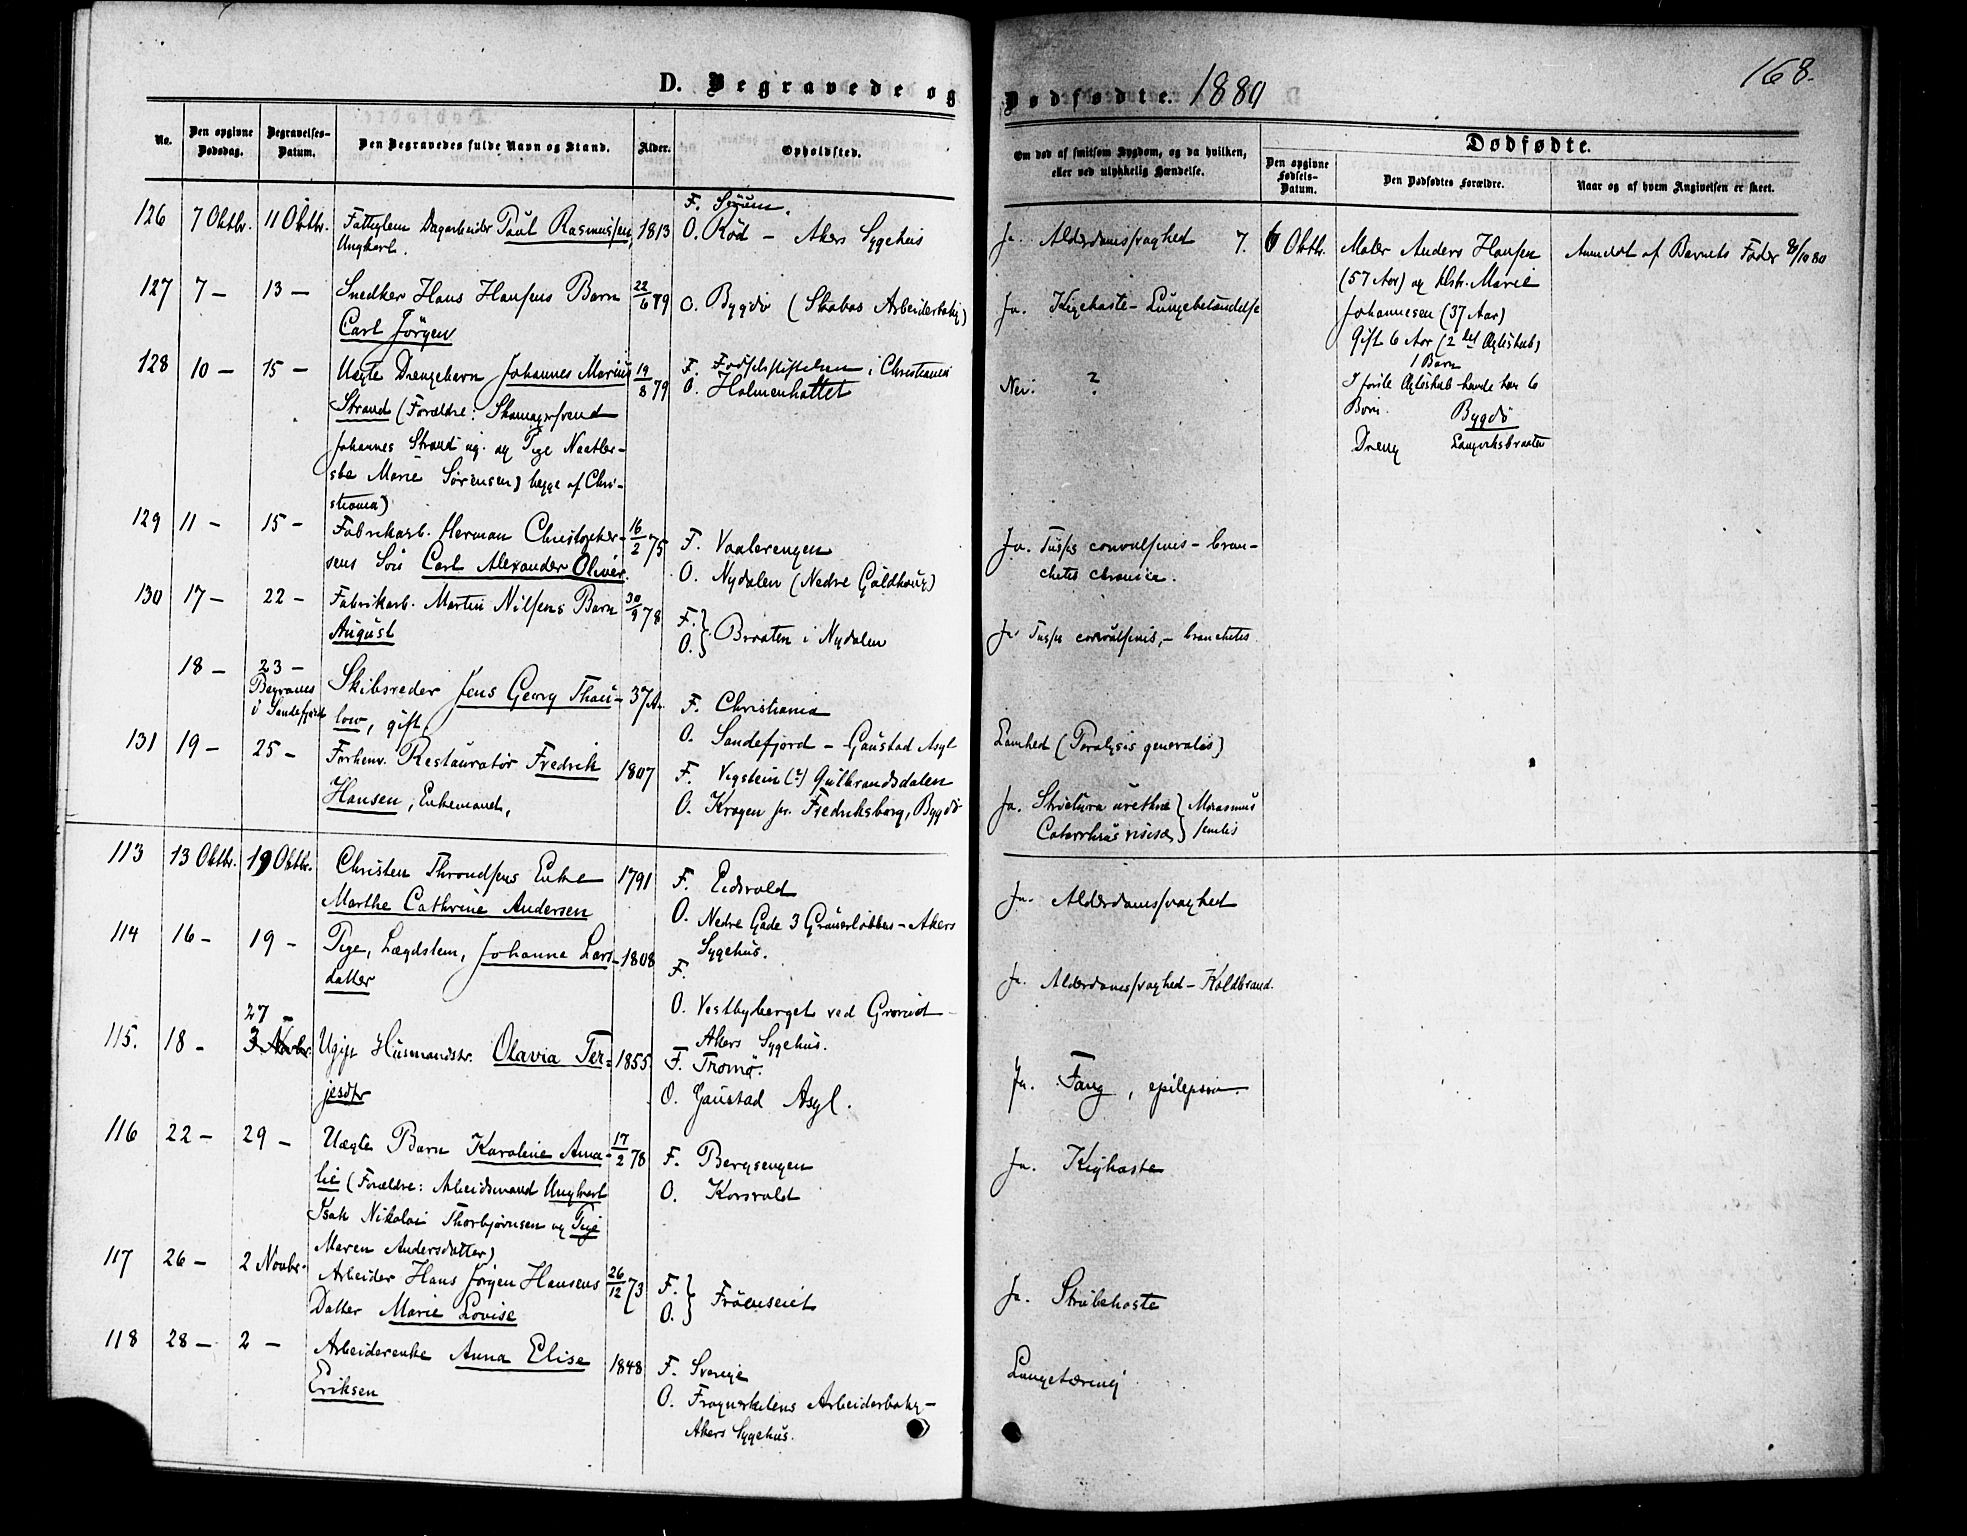 D. Begravede og
Dødfødte. 1880
168.
No.
Den opgivne Dødsdag.
Begravelses-Datum.
Den Begravedes fulde Navn og Stand.
Alder.
Opholdsted.
Om død af smitsom Sygdom, og da hvilken, eller ved ulykkelig Hændelse.
Dødfødte.
Den opgivne Fødsels-Datum.
Den Dødfødtes Forældre.
Naar og af hvem Angivelsen er skeet.
126 7 Oktbr. 11 Oktbr. Fattiglem Dagarbeider Paul Rasmussen 1813 F. Sørum.
Ungkarl. O. Röd – Akers Sygehus
Ja. Alderdomssvaghed
7. 6 Oktb. Maler Anders Hansen
(57 Aar) og Hstr. Marie
Johannesen (37 Aar)
Gift 6 Aar (2det Ægteskab)
1 Barn
I første Ægteskab havde han 6
Børn. Bygdö
Dreng Langviksbraaten
Anmeldt af Barnets Fader 8/10 80
127 7 – 13 – Snedker Hans Hansens Barn 22/6 79 O. Bygdö (Skabos Arbeiderbolig)
Carl Jörgen
Ja. Kighoste – Lungebetændelse
128 10 – 15 – Uægte Drengebarn Johannes Marius 19/8 79 F. Fødselsstiftelsen i Christiania
Strand (Forældre: Skomagersvend O. Holmenkollet
Johannes Strand ug. og Pige Naatler-
ske Marie Sørensen, begge af Chri-
stiania)
Nei. ?
129 11 – 15 – Fabrikarb. Herman Christopher- 16/2 75 F. Vaalerengen
sens Sön Carl Alexander Oliver. O. Nydalen (Nedre Guldhaug)
Ja. Tussis convulsivis – bron-
chites chronica.
130 17 – 22 – Fabrikarb. Martin Nilsens Barn 30/9 78 F. O. } Braaten i Nydalen
August
Ja. Tussis convulsivis, – bronchetes
18 – 23 – Skibsreder Jens Georg Thau- 37 A. F. Christiania
Begraves i Sandefjord low, gift, O. Sandefjord – Gaustad Asyl
Lamhed (Paralysis generalis)
131 19 – 25 – Forhenv. Restauratör Fredrik 1807 F. Vegstein (?) Gulbrandsdalen
Hansen, Enkemand, O. Krogen pr. Fredriksborg, Bygdö
Ja. Strictura urethræ } Marasmus
Catarrhus vesicæ } senilis
113 13 Oktbr. 19 Oktbr. Christen Throndsens Enke 1791 F. Eidsvold
Marthe Cathrine Andersen O. Nedre Gade 3 Grünerløkken – Akers
Sygehus.
Ja. Alderdomssvaghed
114 16 – 19 – Pige, Lægdslem, Johanne Lars- 1808 F.
datter O. Vestbyberget ved Grorud –
Akers Sygehus.
Ja. Alderdomssvaghed – Koldbrand.
27 –
115. 18 – 3 Novbr. Ugift Husmandsdtr. Olavia Ter- 1855. F. Tromö.
jesdtr O. Gaustad Asyl.
Ja. Fang, epilepsia.
116 22 – 29 – Uægte Barn Karoline Ama- 17/2 78 F. Bergsengen
lie (Forældre: Arbeidsmand Ungkarl O. Korsvold
Isak Nikolai Thorbjørnsen og Pige
Maren Andersdatter)
Ja. Kighoste
117 26 – 2 Novbr. Arbeider Hans Jörgen Hansens 26/12 73 F. O. } Fröenseiet
Datter Marie Lovise
Ja. Strubehoste
118 28 – 2 – Arbeiderenke Anna Elise 1848 F. Sverige
Eriksen O. Frognerkilens Arbeiderbolig –
Akers Sygehus.
Lungetæring